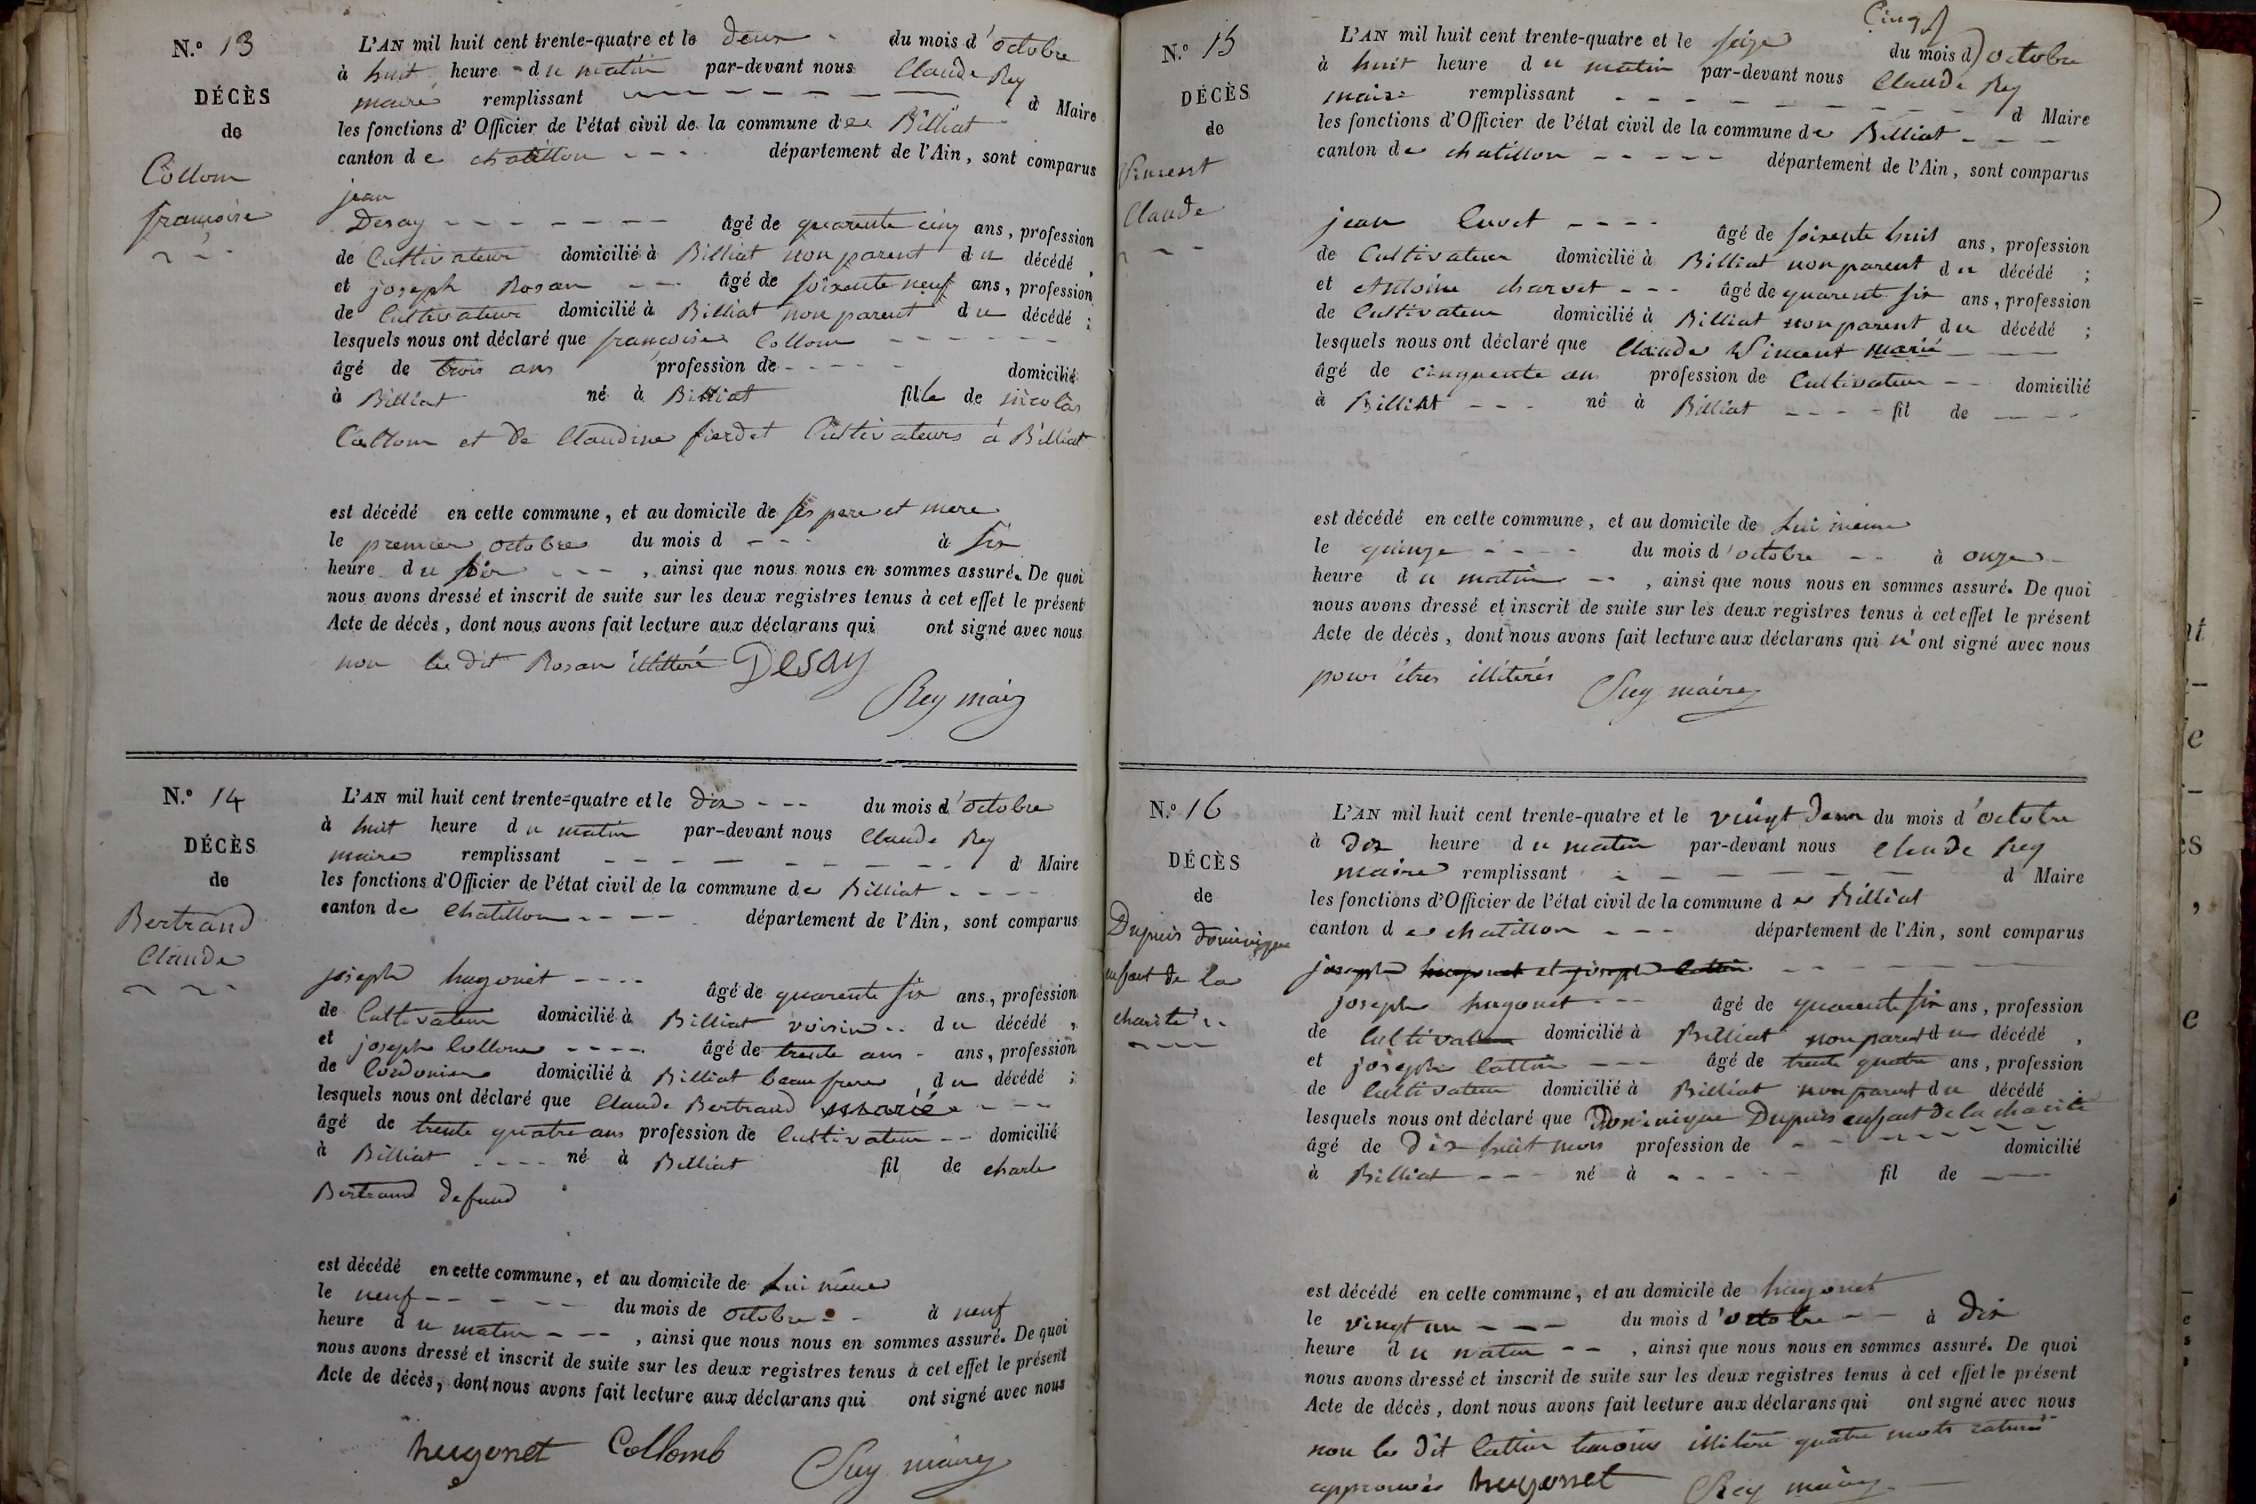 N.º 13
DÉCÈS
de
Collom
françoise
L'AN mil huit cent trente-quatre et le deux du mois d'octobre
à huit heure du matin par-devant nous Claude Rey
maire remplissant d Maire
les fonctions d'Officier de l'état civil de la commune de Billiat
canton de chatillon département de l'Ain, sont comparus
jean
Desay âgé de quarente cinq ans, profession
de Cultivateur domicilié à Billiat non parent du décédé,
et joseph Rosan âgé de soixente neuf ans, profession
de Cultivateur domicilié à Billiat non parent du décédé;
lesquels nous ont déclaré que françoise Collom
âgé de trois ans profession de domicilié
à Billiat né à Billiat fille de nicolas
Collom et de Claudine fierdet Cultivateurs à Billiat
est décédé en cette commune, et au domicile de ses pere et mere
le premier octobre du mois d à six
heure du soir, ainsi que nous nous en sommes assuré. De quoi
nous avons dressé et inscrit de suite sur les deux registres tenus à cet effet le présent
Acte de décès, dont nous avons fait lecture aux déclarans qui ont signé avec nous
non le dit Rosan illitteré Desay
Rey maire
N.º 14
DÉCÈS
de
Bertrand
Claude
L'AN mil huit cent trente-quatre et le dix du mois d'octobre
à huit heure du matin par-devant nous Claude Rey
maire remplissant d Maire
les fonctions d'Officier de l'état civil de la commune de Billiat
canton de Chatillon département de l'Ain, sont comparus
joseph hugonet âgé de quarente six ans, profession
de Cultivateur domicilié à Billiat voisin du décédé,
et joseph Collom âgé de trente ans ans, profession
de Cordonier domicilié à Billiat beau frere du décédé;
lesquels nous ont déclaré que Claude Bertrand marié
âgé de trente quatre ans profession de Cultivateur domicilié
à Billiat né à Billiat fil de charle
Bertrand defund
est décédé en cette commune, et au domicile de Lui même
le neuf du mois de octobre à neuf
heure du matin, ainsi que nous nous en sommes assuré. De quoi
nous avons dressé et inscrit de suite sur les deux registres tenus à cet effet le présent
Acte de décès, dont nous avons fait lecture aux déclarans qui ont signé avec nous
hugonet Collomb Rey maire
Cinq
N.º 15
DÉCÈS
de
Vincent
Claude
L'AN mil huit cent trente-quatre et le seize du mois d'octobre
à huit heure du matin par-devant nous Claude Rey
maire remplissant d Maire
les fonctions d'Officier de l'état civil de la commune de Billiat
canton de chatillon département de l'Ain, sont comparus
jean Cuvet âgé de soixente huit ans, profession
de Cultivateur domicilié à Billiat non parent du décédé;
et Antoine charvet âgé de quarent six ans, profession
de Cultivateur domicilié à Billiat non parent du décédé;
lesquels nous ont déclaré que Claude Vincent marié
âgé de cinquente ans profession de Cultivateur domicilié
à Billiat né à Billiat fil de
est décédé en cette commune, et au domicile de Lui meme
le quinze du mois d'octobre à onze
heure du matin, ainsi que nous nous en sommes assuré. De quoi
nous avons dressé et inscrit de suite sur les deux registres tenus à cet effet le présent
Acte de décès, dont nous avons fait lecture aux déclarans qui n'ont signé avec nous
pour êtres illiterés Rey maire
N.º 16
DÉCÈS
de
Dupuis dominique
enfant de la
charité
L'AN mil huit cent trente-quatre et le vingt deux du mois d'octobre
à dix heure du matin par-devant nous Claude Rey
maire remplissant d Maire
les fonctions d'Officier de l'état civil de la commune de Billiat
canton de chatillon département de l'Ain, sont comparus
joseph hugonet et joseph Cattin
joseph hugonet âgé de quarente six ans, profession
de Cultivateur domicilié à Billiat non parent du décédé,
et joseph Cattin âgé de trente quatre ans, profession
de Cultivateur domicilié à Billiat non parent du décédé
lesquels nous ont déclaré que Dominique Dupuis enfant de la charité
âgé de dix huit mois profession de domicilié
à Billiat né à fil de
est décédé en cette commune, et au domicile de hugonet
le vingt un du mois d'octobre à dix
heure du matin, ainsi que nous nous en sommes assuré. De quoi
nous avons dressé et inscrit de suite sur les deux registres tenus à cet effet le présent
Acte de décès, dont nous avons fait lecture aux déclarans qui ont signé avec nous
non le dit Cattin temoins illiteré quatre mots raturés
approuvés hugonet Rey maire